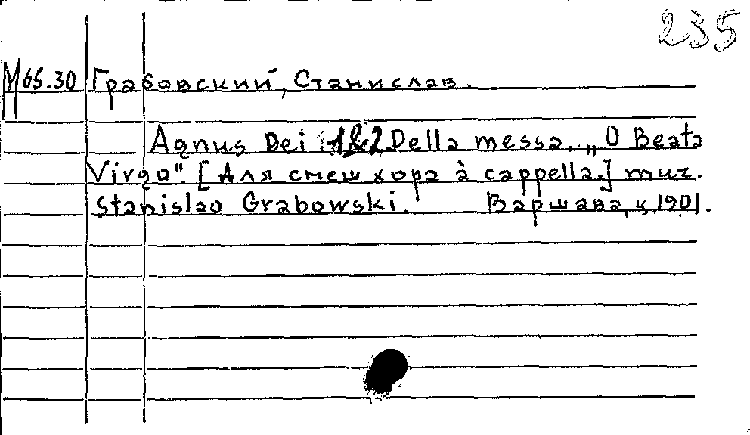 235
М65.30 Грабовский, Станислав.
Agnus Dei 1&2 Della messa „O Beata
Virgo". [Для смеш хора à cappella.] muz.
Stanislao Grabowski. Варшава, ц. 1901.